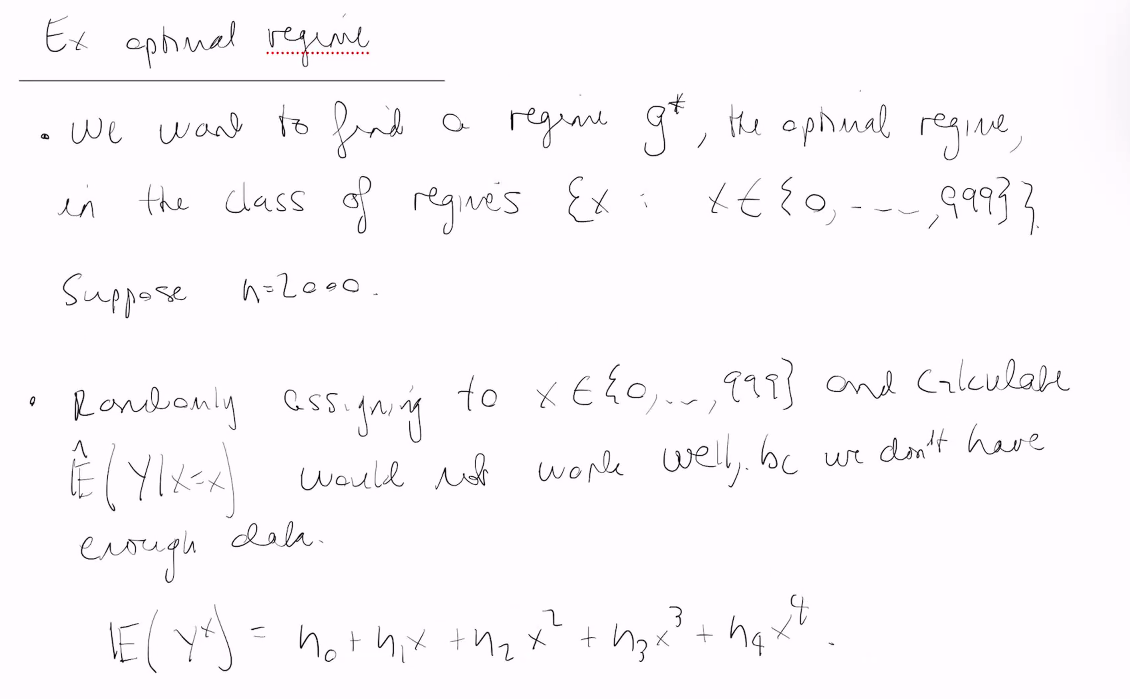 Ex optimal regime
• We want to find a regime g*, the optimal regime,
in the class of regimes {x : x ∈ {0, ---, 999}}.
Suppose n=2000.
• Randomly assigning to x ∈ {0, ..., 999} and calculate
Ê(Y|X=x) would not work well, bc we don't have
enough data.
𝔼(Yˣ) = η₀ + η₁x + η₂x² + η₃x³ + η₄x⁴.